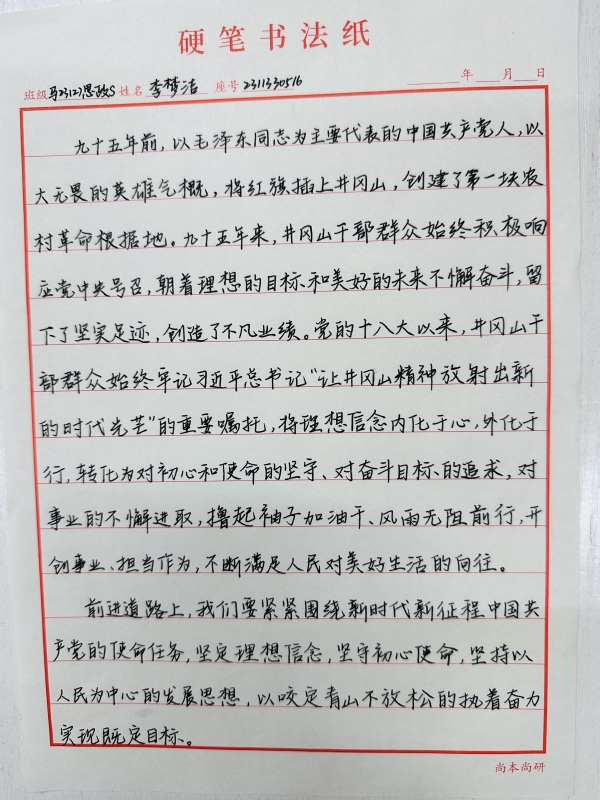 硬笔书法纸
班级马23(2)思政S 姓名 李梦洁 座号2311330516 年 月 日
九十五年前，以毛泽东同志为主要代表的中国共产党人，以
大无畏的英雄气概，将红旗插上井冈山，创建了第一块农
村革命根据地。九十五年来，井冈山干部群众始终积极响
应党中央号召，朝着理想的目标和美好的未来不懈奋斗，留
下了坚实足迹，创造了不凡业绩。党的十八大以来，井冈山干
部群众始终牢记习近平总书记“让井冈山精神放射出新
的时代光芒”的重要嘱托，将理想信念内化于心，外化于
行，转化为对初心和使命的坚守、对奋斗目标的追求，对
事业的不懈进取，撸起袖子加油干、风雨无阻前行，开
创事业、担当作为，不断满足人民对美好生活的向往。
前进道路上，我们要紧紧围绕新时代新征程中国共
产党的使命任务，坚定理想信念，坚守初心使命，坚持以
人民为中心的发展思想，以咬定青山不放松的执着奋力
实现既定目标。
尚本尚研